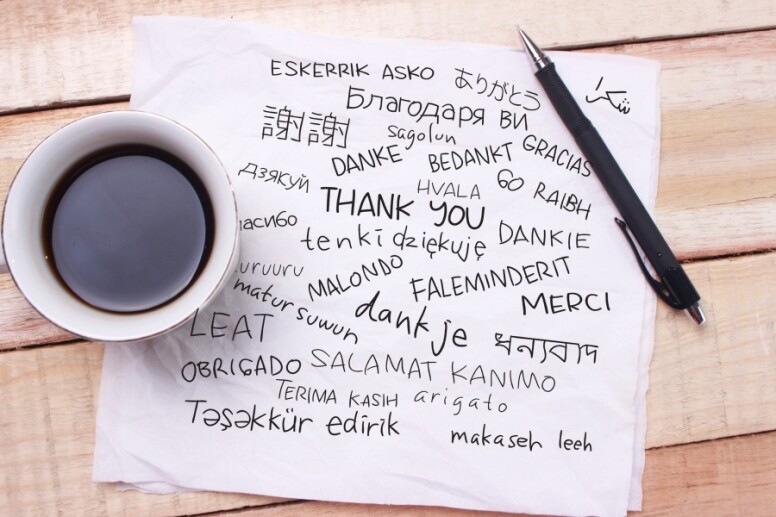 ESKERRIK ASKO
ありがとう
شكرا
Благодаря ВИ
謝謝
sagolun
GRACIAS
DANKE
BEDANKT
дзякуй
HVALA
GO RAIBH
THANK YOU
асибо
tenki
dziękuję
DANKIE
uruuru
MALONDO
FALEMINDERIT
matur suwun
MERCI
dank je
LEAT
ধন্যবাদ
OBRIGADO
SALAMAT KANIMO
TERIMA KASIH
arigato
Təşəkkür edirik
makaseh leeh